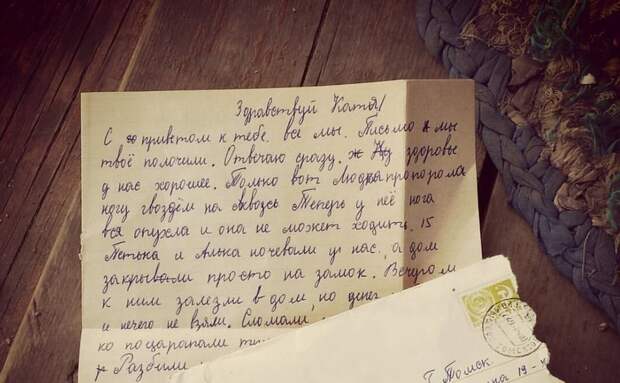 Здравствуй Катя!
С приветом к тебе все мы. Письмо мы
твоё получили. Отвечаю сразу. здоровье
у нас хорошее. Только вот Людка пропорола
ногу гвоздём на Теперь у неё нога
вся опухла и она не может ходить. 15
Петька и Алька ночевали у нас, а дом
закрывали просто на замок. Вечером
к ним залезли в дом, но денег
и нечего не взяли. Сломали
ко поцарапали
Разбили
г. Томск
19-